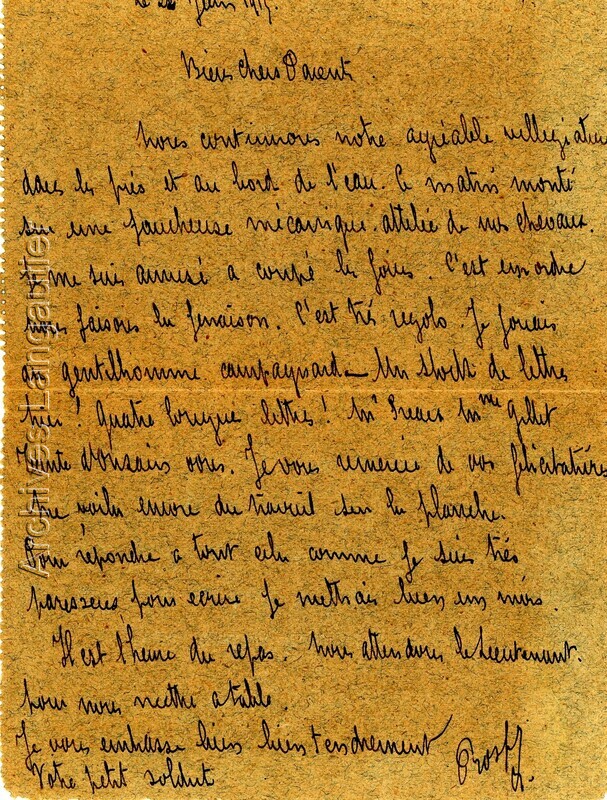 Le 22 Juin 1915.
Biens chers Parents
Nous continuons notre agréable villegiature
dans les prés et au bord de l'eau. Ce matin monté
sur une faucheuse mécanique attelée de nos chevaux.
Je me suis amusé a coupé les foins. C'est en ordre
nous faisons la fenaison. C'est très rigolo. Je jouais
au gentilhomme campagnard - Un stock de lettres
hier! Quatre longues lettres! Mr Mme Gillet
Tante vous. Je vous remercie de vos félicitations
me voila encore du travail sur la planche.
Pour répondre a tout cela comme je suis très
paresseux pour ecrire je mettrais bien un mois.
Il est l'heure du repas. Nous attendons le Lieutenant.
pour nous mettre a table.
Je vous embrasse biens biens tendrement
Votre petit soldat
Archives Langautier